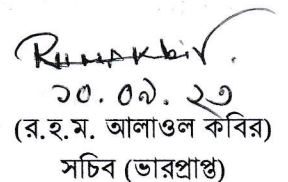 ১০.০৯.২৩
(র.হ.ম. আলাওল কবির)
সচিব (ভারপ্রাপ্ত)